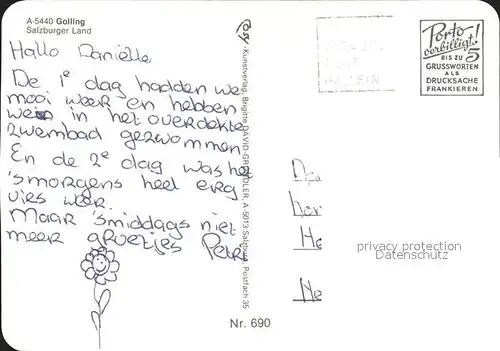 A-5440 Golling
Salzburger Land
Hallo Daniëlle
De 1e dag hadden we
mooi weer en hebben
we in het overdekte
zwembad gezwommen
En de 2e dag was het
'smorgens heel erg
vies weer.
Maar 'smiddags niet
meer groetjes Petra
Kunstverlag, Brigitte DAVID-GRUNDLER, A-5013 Salzburg, Postfach 35
Nr. 690
Porto
verbilligt!
BIS ZU 5
GRUSSWORTEN
ALS
DRUCKSACHE
FRANKIEREN
privacy protection
Datenschutz